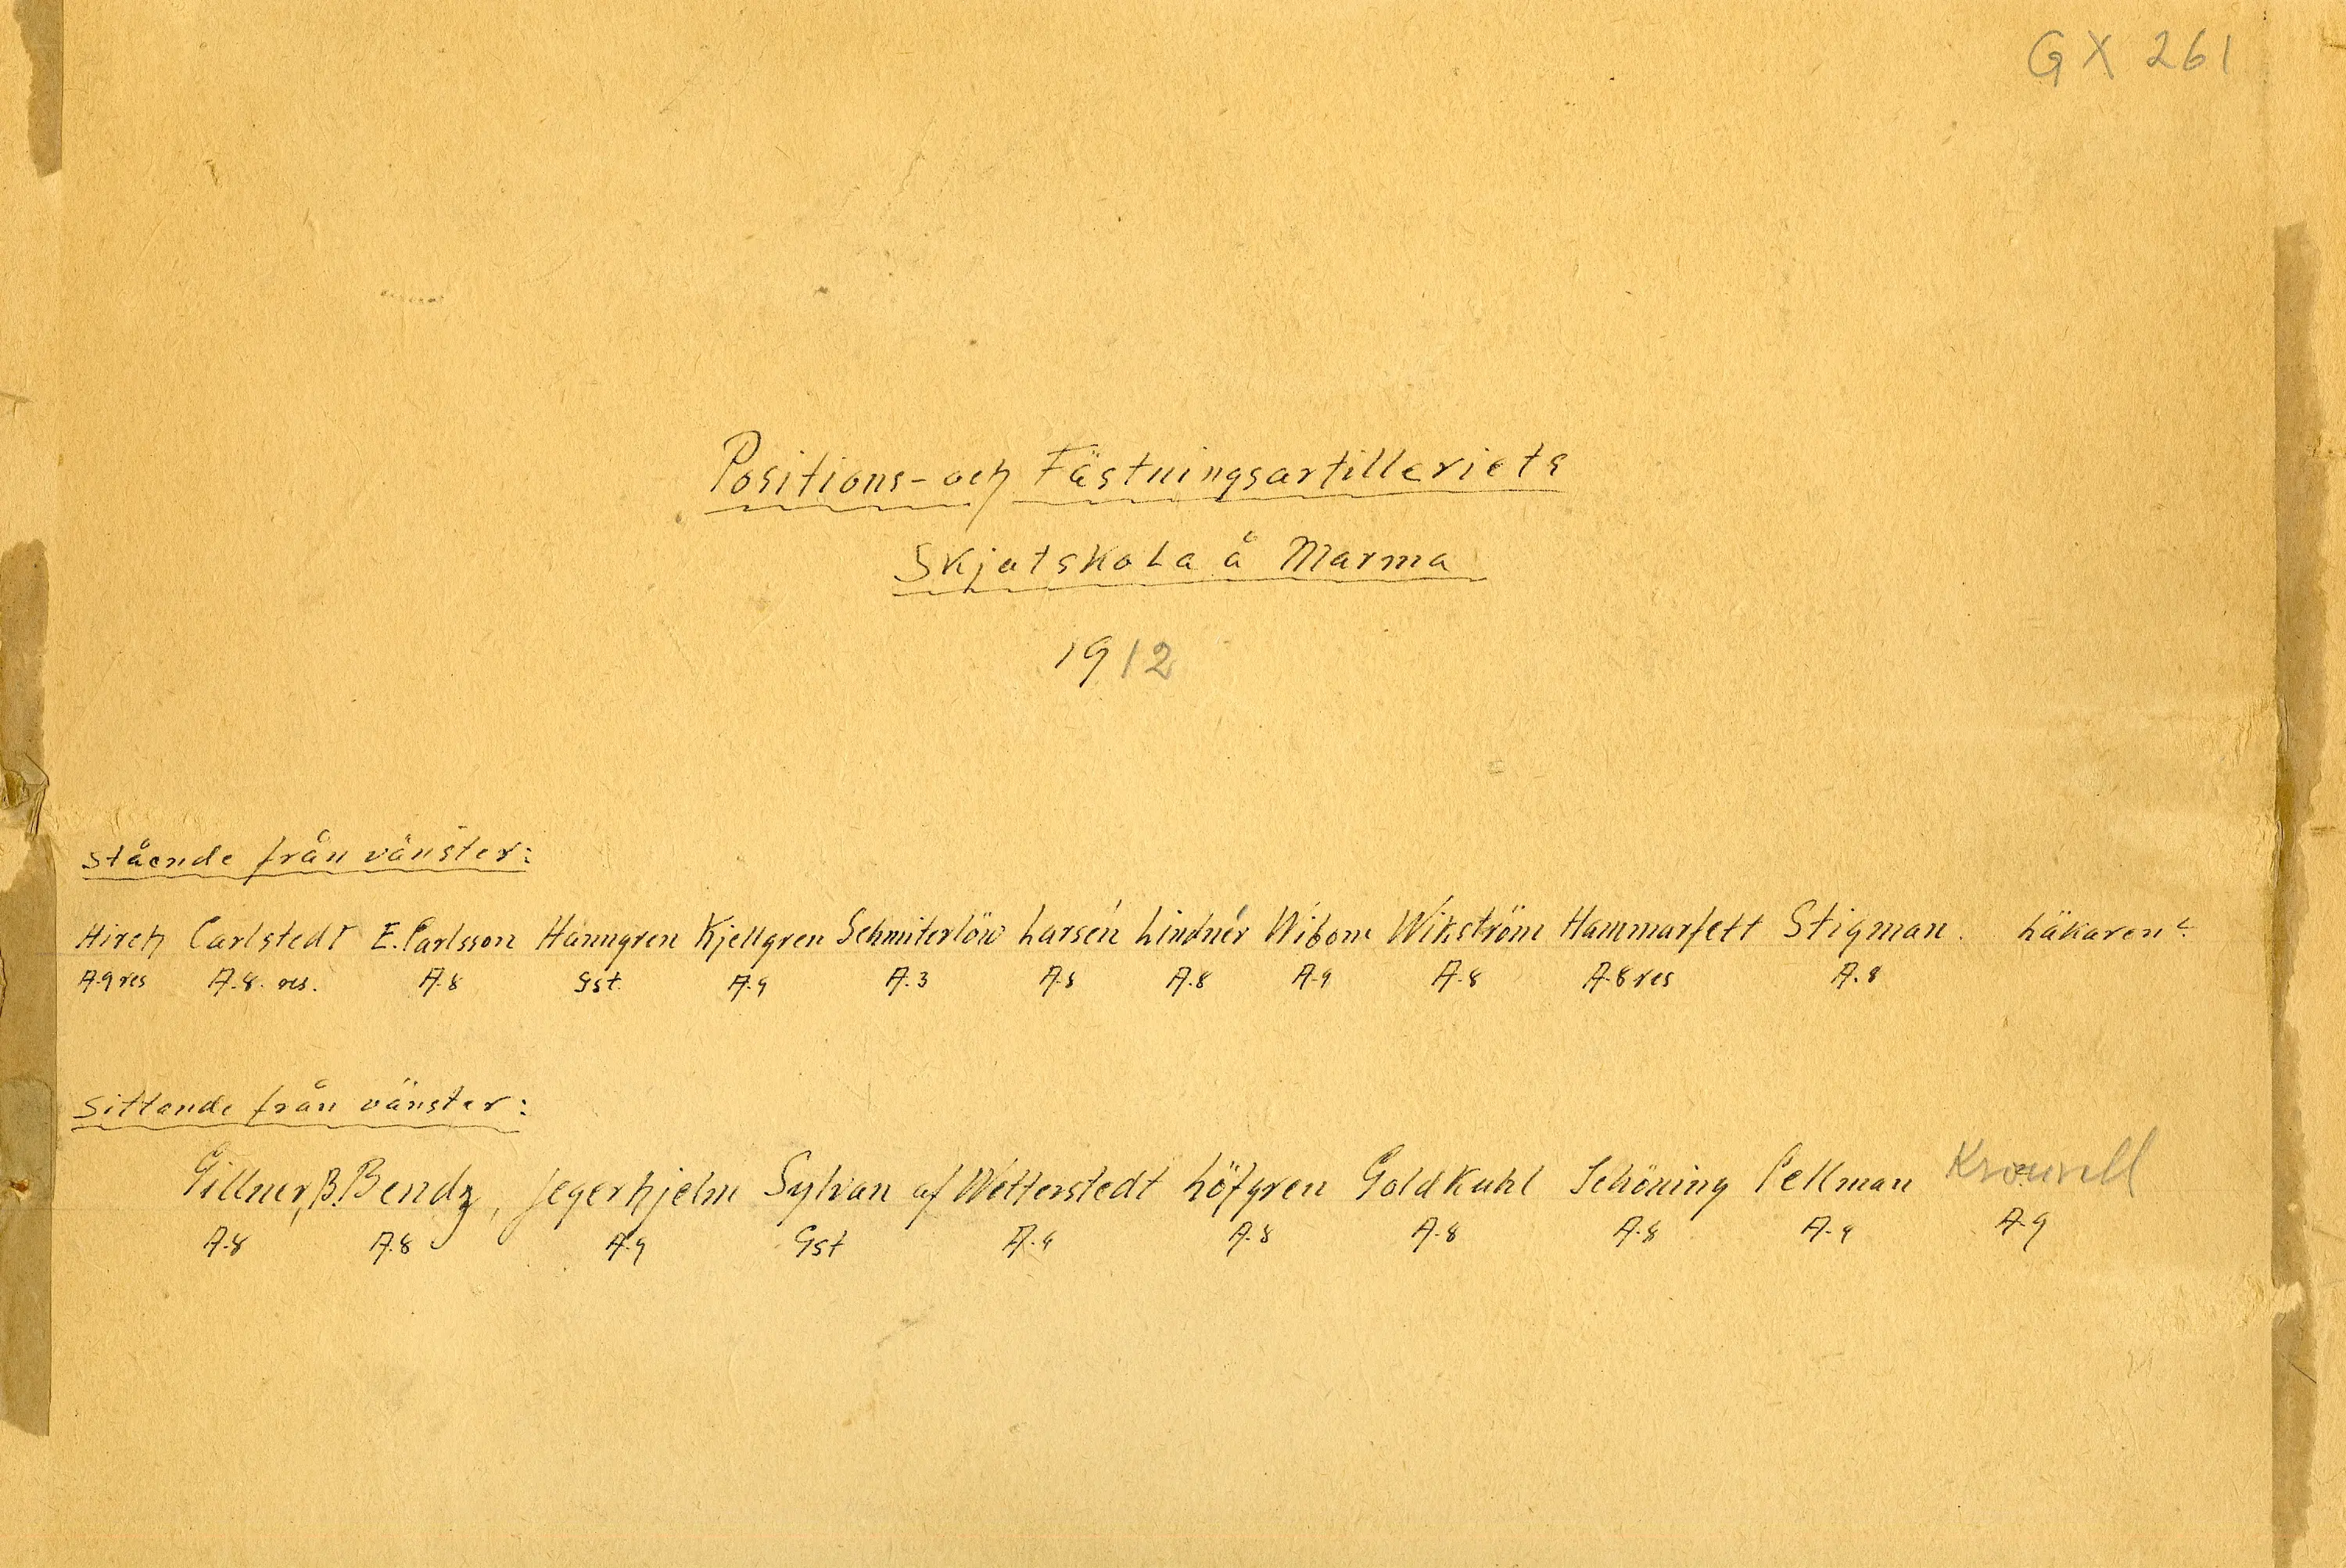 GX 261
Positions- och Fästningsartilleriets
Skjutskola å Marma
1912
Stående från vänster:
Hirch Carlstedt E. Carlsson Hanngren Kjellgren Schmiterlöw Larsén Lindnér Wibom Wikström Hammarfelt Stigman. Läkaren
A.9 res A.8. res. A.8 Gst. A.9 A.3 A.8 A.8 A.9 A.8 A.8 res A.8
Sittande från vänster:
Gillner, B. Bendz, Jegerhjelm Sylvan af Wetterstedt Löfgren Goldkuhl Schöning Pellman
A.8 A.8 A.9 Gst A.9 A.8 A.8 A.8 A.9 A.9